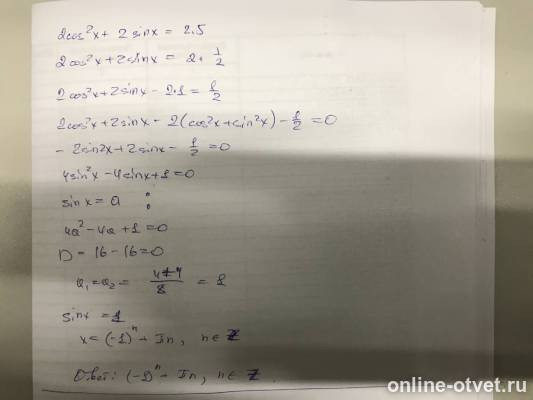 2cos²x + 2sinx = 2.5
2cos²x + 2sinx = 2 + 1/2
2cos²x + 2sinx - 2·1 = 1/2
2cos²x + 2sinx - 2(cos²x + sin²x) - 1/2 = 0
- 2sin²x + 2sinx - 1/2 = 0
4sin²x - 4sinx + 1 = 0
sinx = a :
4a² - 4a + 1 = 0
D = 16 - 16 = 0
a₁ = a₂ = 4+4/8 = 1
sinx = 1
x = (-1)ⁿ + πn, n ∈ Z
Ответ: (-1)ⁿ + πn, n ∈ Z.
online-otvet.ru